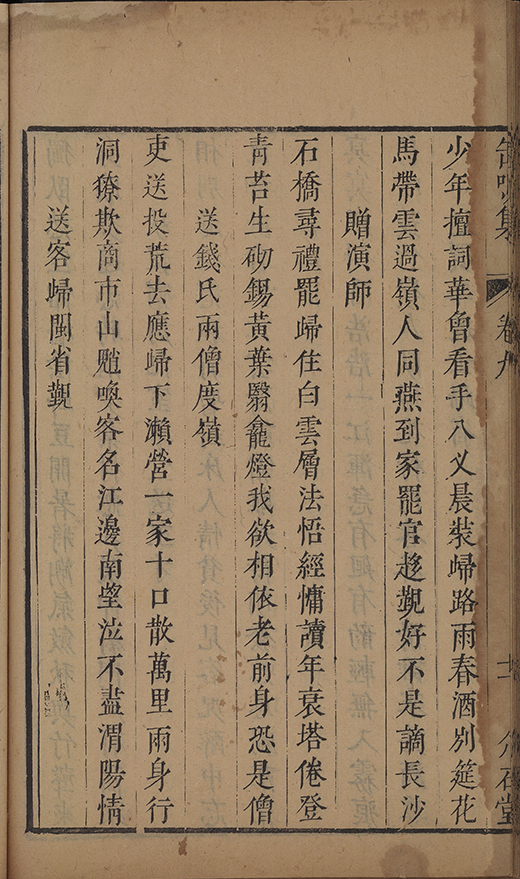 集 卷九 十一 介石堂
少年擅詞華曾看手八义晨裝歸路雨春酒別筵花
馬帶雲過嶺人同燕到家罷官趍覲好不是謫長沙
贈演師
石橋尋禮罷歸住白雲層法悟經慵讀年衰塔倦登
青苔生砌錫黃葉翳龕燈我欲相依老前身恐是僧
送錢氏兩僧度嶺
吏送投荒去應歸下瀨營一家十口散萬里兩身行
洞獠欺商市山魈喚客名江邊南望泣不盡渭陽情
送客歸閩省覲